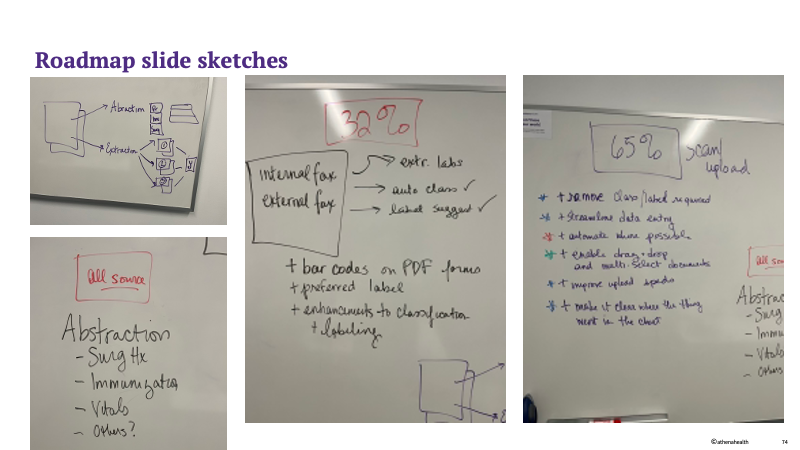 Roadmap slide sketches
Abstraction
Extraction
all source
Abstraction
- Surg Hx
- Immunization
- Vitals
- Others?
32%
internal fax
external fax
extr. labs
auto class ✓
label suggest ✓
+ bar codes on PDF forms
+ preferred label
+ enhancements to classification
+ labeling
65%
scan/
upload
* + remove class/label required
* + streamline data entry
* + automate where possible
* + enable drag + drop
and multi-select documents
* + improve upload speeds
* + make it clear where the thing
went in the chart
all sou
Abstrac
- Surg
- Immu
- Vitals
- Others
©athenahealth
74